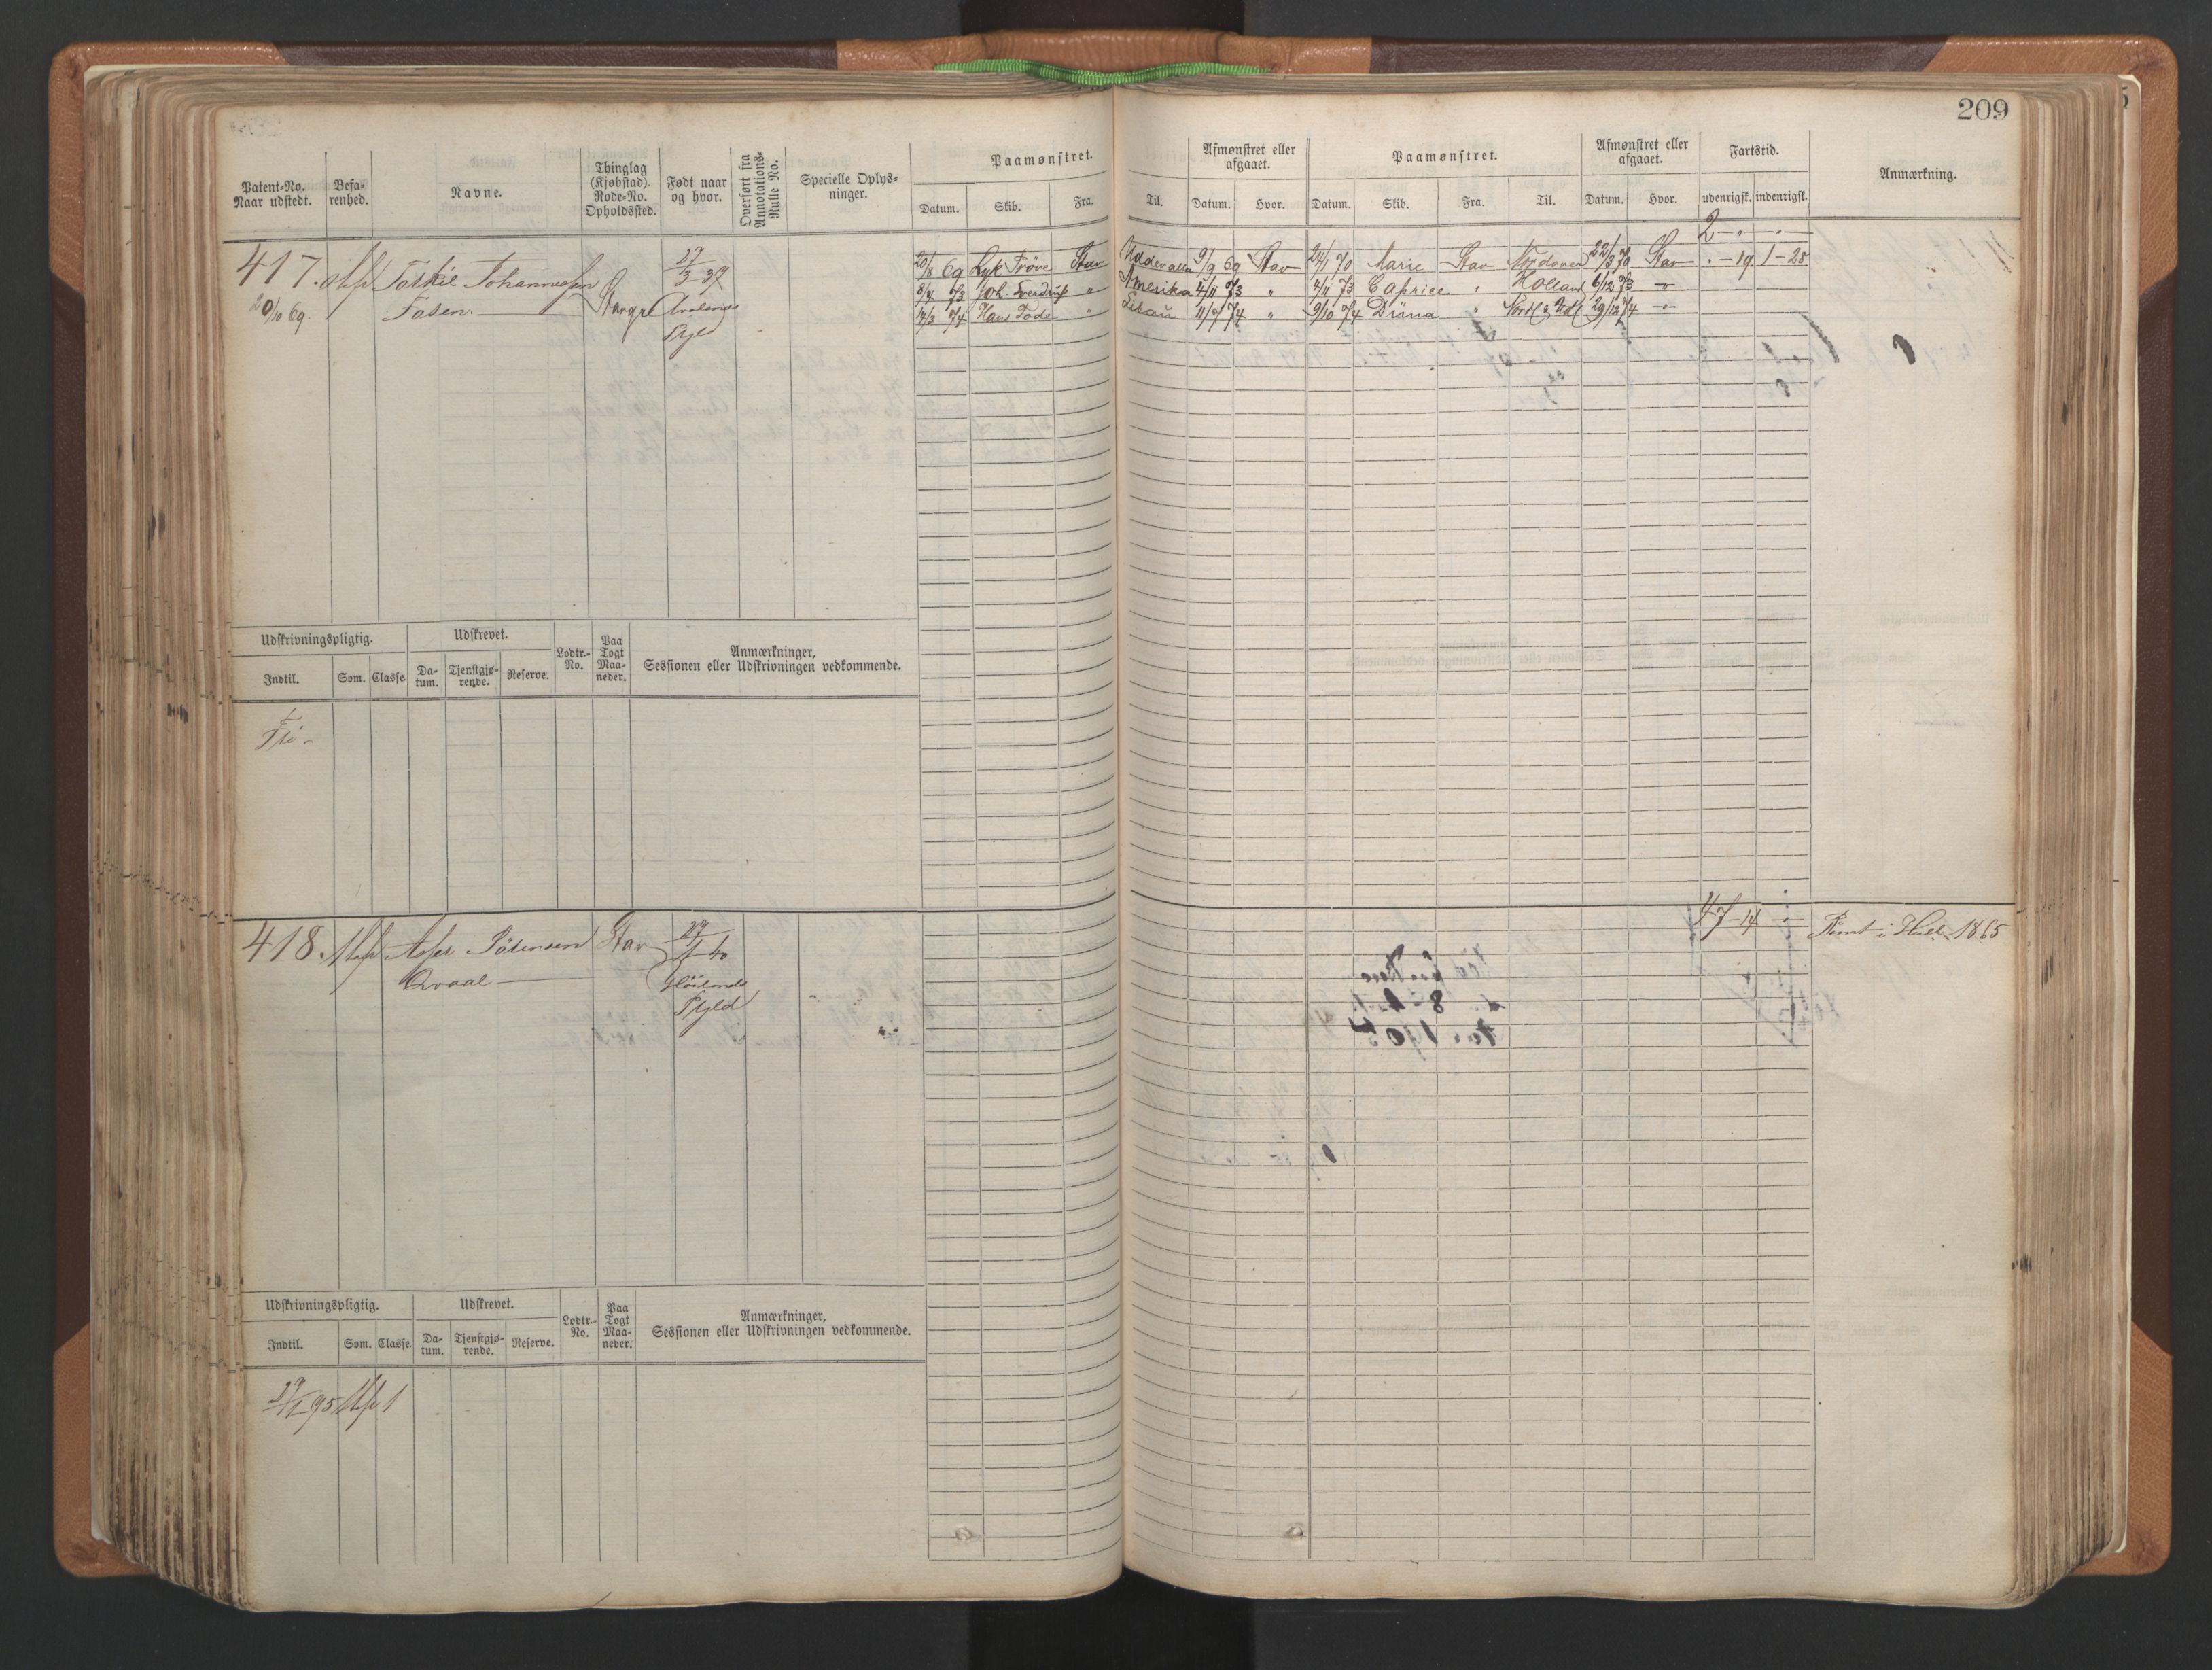 209
Patent-No. Naar udstedt.
Befarenhed.
Navne.
Thinglag (Kjøbstad) Rode-No. Opholdssted.
Født naar og hvor.
Overført fra Annotations-Rulle No.
Specielle Oplysninger.
Paamønstret.
Datum. Skib. Fra. Til.
Afmønstret eller afgaaet.
Datum. Hvor.
Paamønstret.
Datum. Skib. Fra. Til.
Afmønstret eller afgaaet.
Datum. Hvor.
Fartstid.
udenrigsk. indenrigsk.
Anmærkning.
2 - " - "
417. Torkil Johannesen 27/3 37 20/8 69 Lyk Prøve Stav Uddevalla 9/9 69 Stav 24/1 70 Marie Stav Nordover 22/3 70 Stav " - 19 1 - 28
5/4 73 Joh Sverdrup " Amerika 4/11 73 " 7/11 73 Caprice " Holland 6/12 73 - " -
20/10 69. Fosen. 14/3 74 Hans Tode " Libau 11/7 74 " 9/10 74 Düna " 29/12 74 - " -
Udskrivningspligtig. Udskrevet. Lodtr.-No. Paa Togt Maaneder. Anmærkninger, Sessionen eller Udskrivningen vedkommende.
Indtil. Som. Classe. Datum. Tjenstgjørende. Reserve.
Fri -
418. Sørensen Stav 29/1 40 7 - 14 - Rømt i Hull 1865
Qvaal
Udskrivningspligtig. Udskrevet. Lodtr.-No. Paa Togt Maaneder. Anmærkninger, Sessionen eller Udskrivningen vedkommende.
Indtil. Som. Classe. Datum. Tjenstgjørende. Reserve.